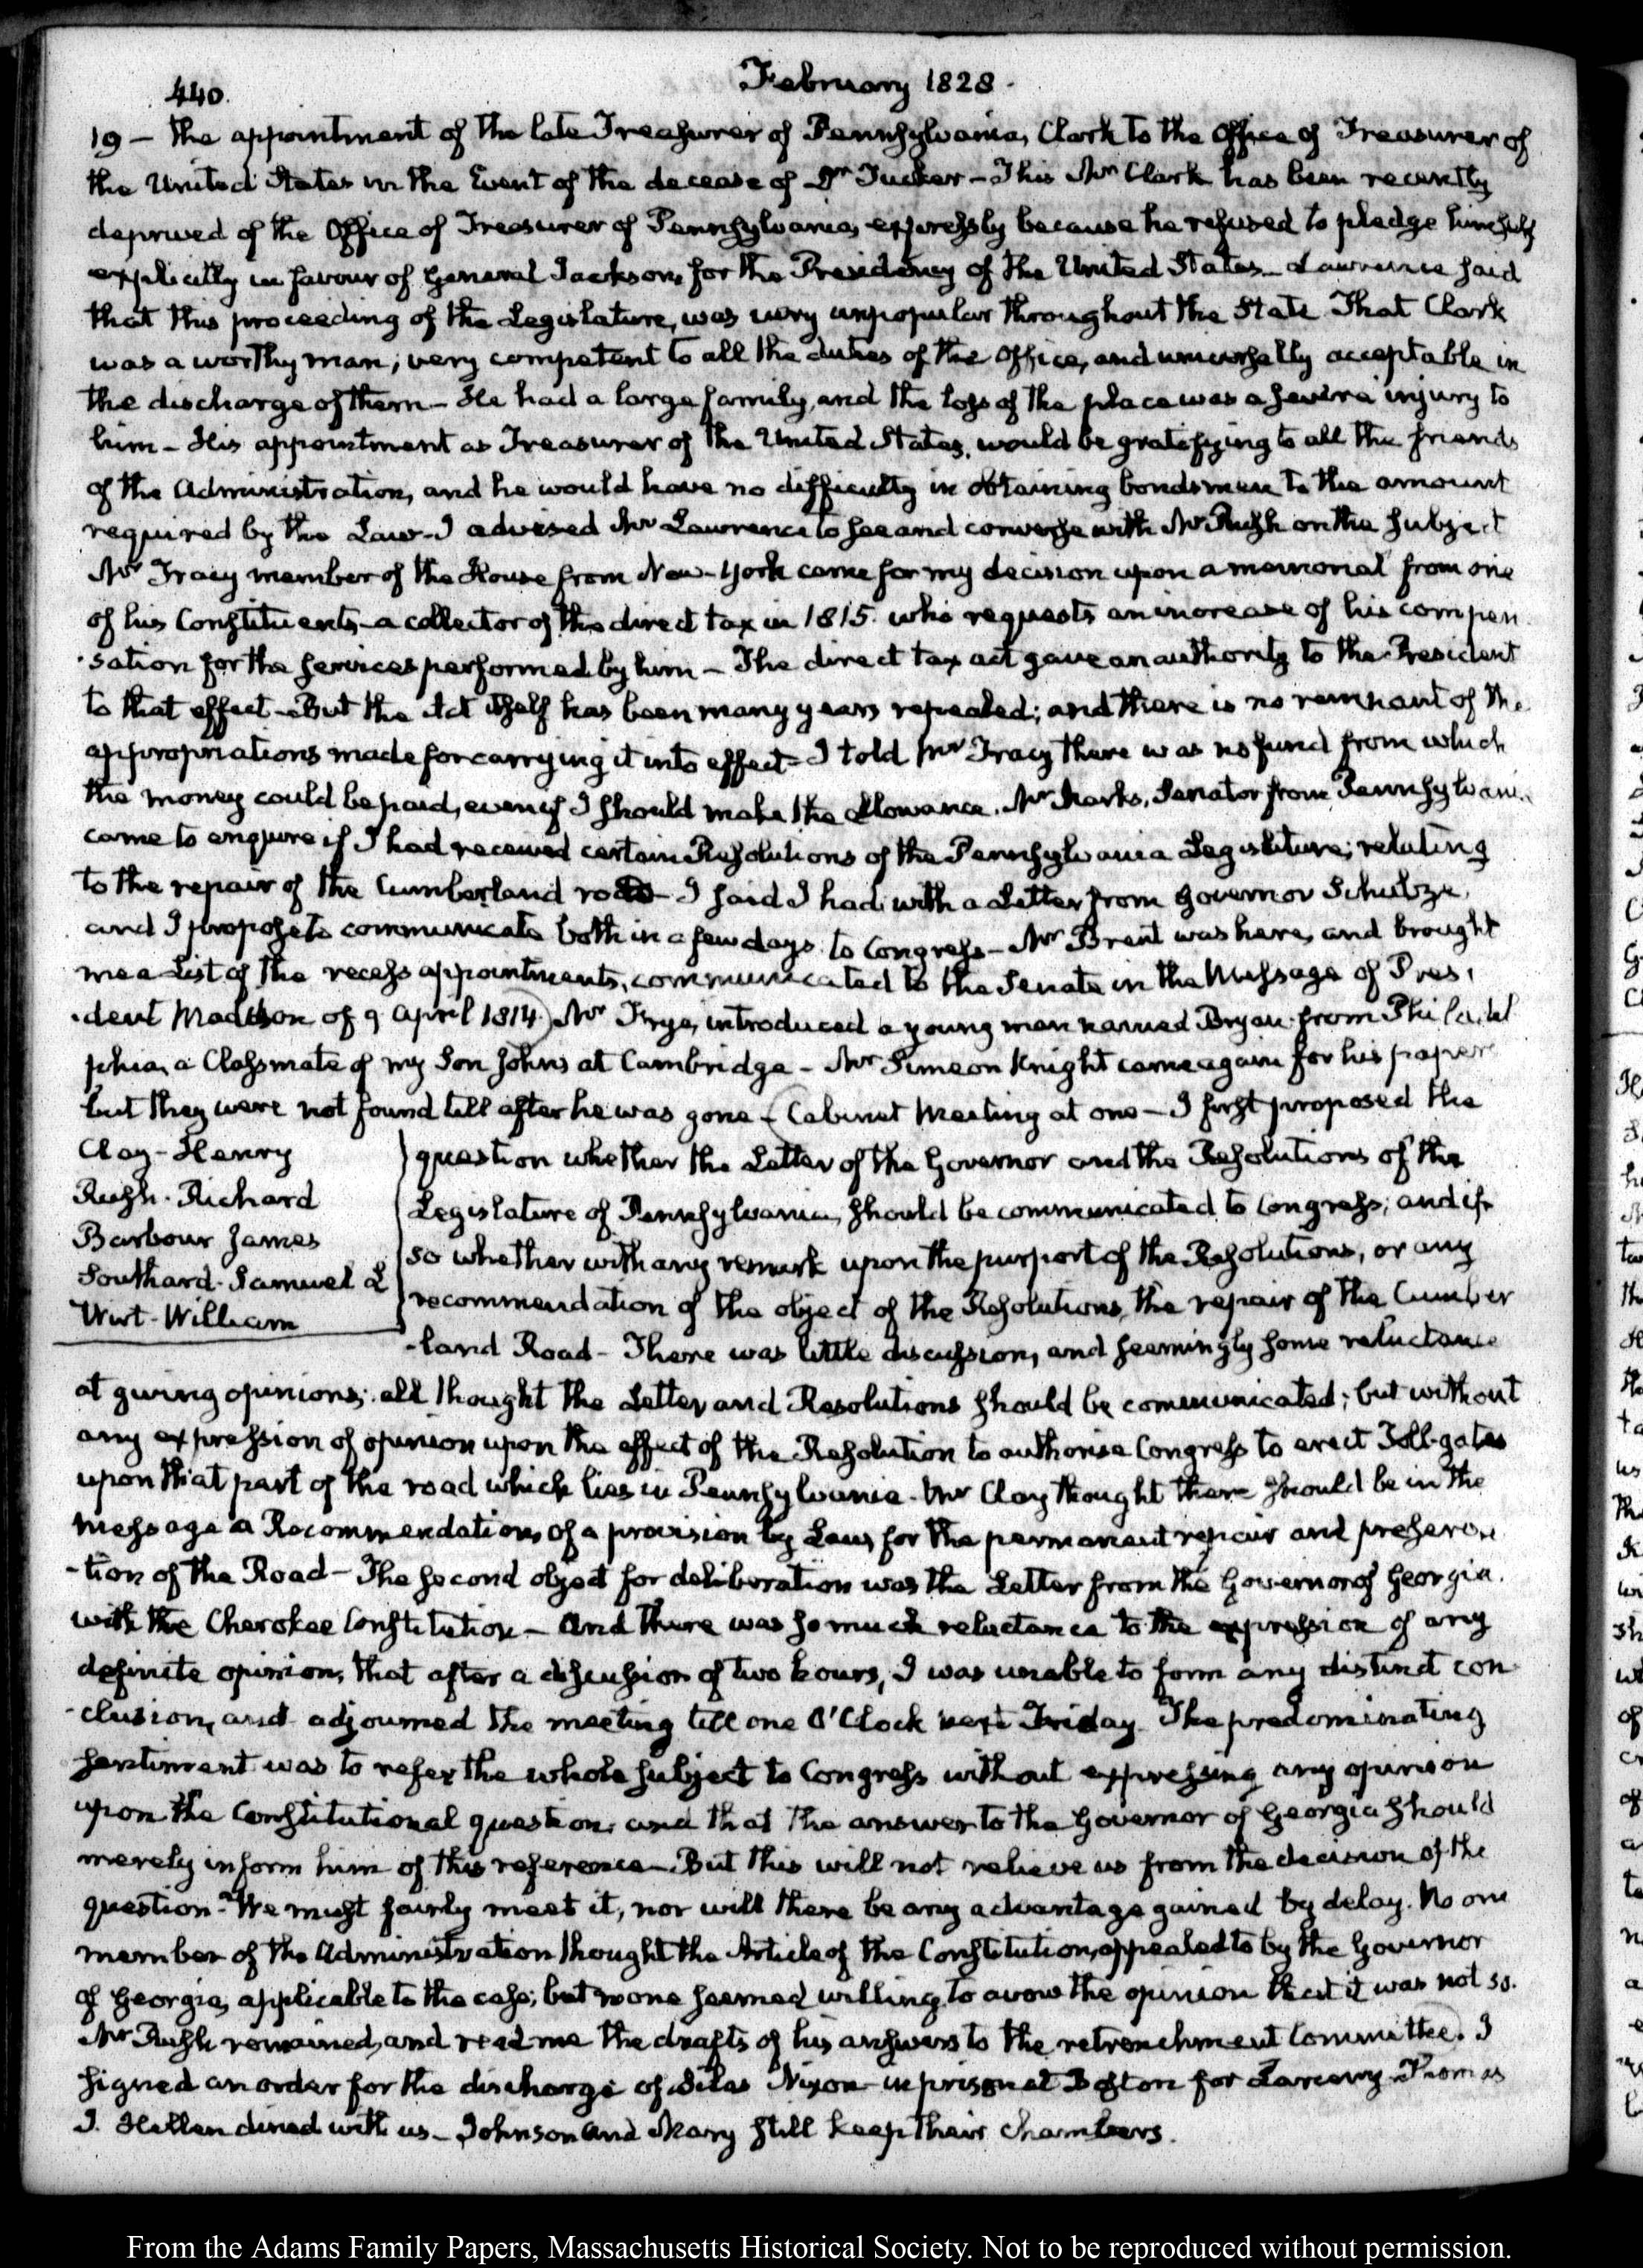 440.
February 1828.
19 – the appointment of the late Treasurer of Pennsylvania, Clark to the Office of Treasurer of
the United States in the Event of the decease of Dr Tucker – This Mr Clark has been recently
deprived of the Office of Treasurer of Pennsylvania, expressly because he refused to pledge himself
explicitly in favour of General Jackson, for the Presidency of the United States – Lawrence said
that this proceeding of the Legislature, was very unpopular throughout the State That Clark
was a worthy man, very competent to all the duties of the Office, and universally acceptable in
the discharge of them – He had a large family, and the loss of the place was a severe injury to
him – His appointment as Treasurer of the United States, would be gratifying to all the friends
of the Administration, and he would have no difficulty in obtaining bondsmen to the amount
required by the Law – I advised Mr Lawrence to see and converse with Mr Rush on the subject
Mr Tracy member of the House from New-York came for my decision upon a memorial from one
of his Constituents – a collector of the direct tax in 1815. who requests an increase of his compen
-sation for the services performed by him – The direct tax act gave an authority to the President
to that effect – But the Act itself has been many years repealed; and there is no remnant of the
appropriations made for carrying it into effect – I told Mr Tracy there was no fund from which
the money could be paid, even if I should make the allowance. Mr Marks, Senator from Pennsylvania
came to enquire if I had received certain Resolutions of the Pennsylvania Legislature; relating
to the repair of the Cumberland road – I said I had, with a Letter from Governor Schulze,
and I propose to communicate both in a few days to Congress – Mr Brent was here, and brought
me a List of the recess appointments, communicated to the Senate in the Message of Presi
-dent Madison of 9 April 1814) Mr Frye, introduced a young man named Bryan from Philadel
phia, a Classmate of my Son John's at Cambridge – Mr Simeon Knight came again for his papers
but they were not found till after he was gone – (Cabinet Meeting at one – I first proposed the
Clay – Henry
Rush – Richard
Barbour James
Southard – Samuel L
Wirt – William
question whether the Letter of the Governor and the Resolutions of the
Legislature of Pennsylvania, should be communicated to Congress; and if
so whether with any remark upon the purport of the Resolutions, or any
recommendation of the object of the Resolutions, the repair of the Cumber
-land Road – There was little discussion, and seemingly some reluctance
at giving opinions; all thought the Letter and Resolutions should be communicated; but without
any expression of opinion upon the effect of the Resolution to authorise Congress to erect Toll-gates
upon that part of the road which lies in Pennsylvania – Mr Clay thought there should be in the
message a Recommendation, of a provision by Law, for the permanent repair and preserva
-tion of the Road – The second object for deliberation was the Letter from the Governor of Georgia.
with the Cherokee Constitution – And there was so much reluctance to the expression of any
definite opinion, that after a discussion of two hours, I was unable to form any distinct con
-clusion, and adjourned the meeting till one O'Clock next Friday. The predominating
sentiment was to refer the whole subject to Congress without expressing any opinion
upon the Constitutional question, and that the answer to the Governor of Georgia should
merely inform him of this reference – But this will not relieve us from the decision of the
question – We must fairly meet it, nor will there be any advantage gained by delay. No one
member of the Administration thought the Article of the Constitution, appealed to by the Governor
of Georgia, applicable to the case; but no one seemed willing to avow the opinion that it was not so.
Mr Rush remained, and read me the drafts of his answers to the retrenchment Committee). I
signed an order for the discharge of Silas Nixon in prison at Boston for Larceny – Thomas
J. Hellen dined with us – Johnson and Mary still keep their Chambers.
From the Adams Family Papers, Massachusetts Historical Society. Not to be reproduced without permission.